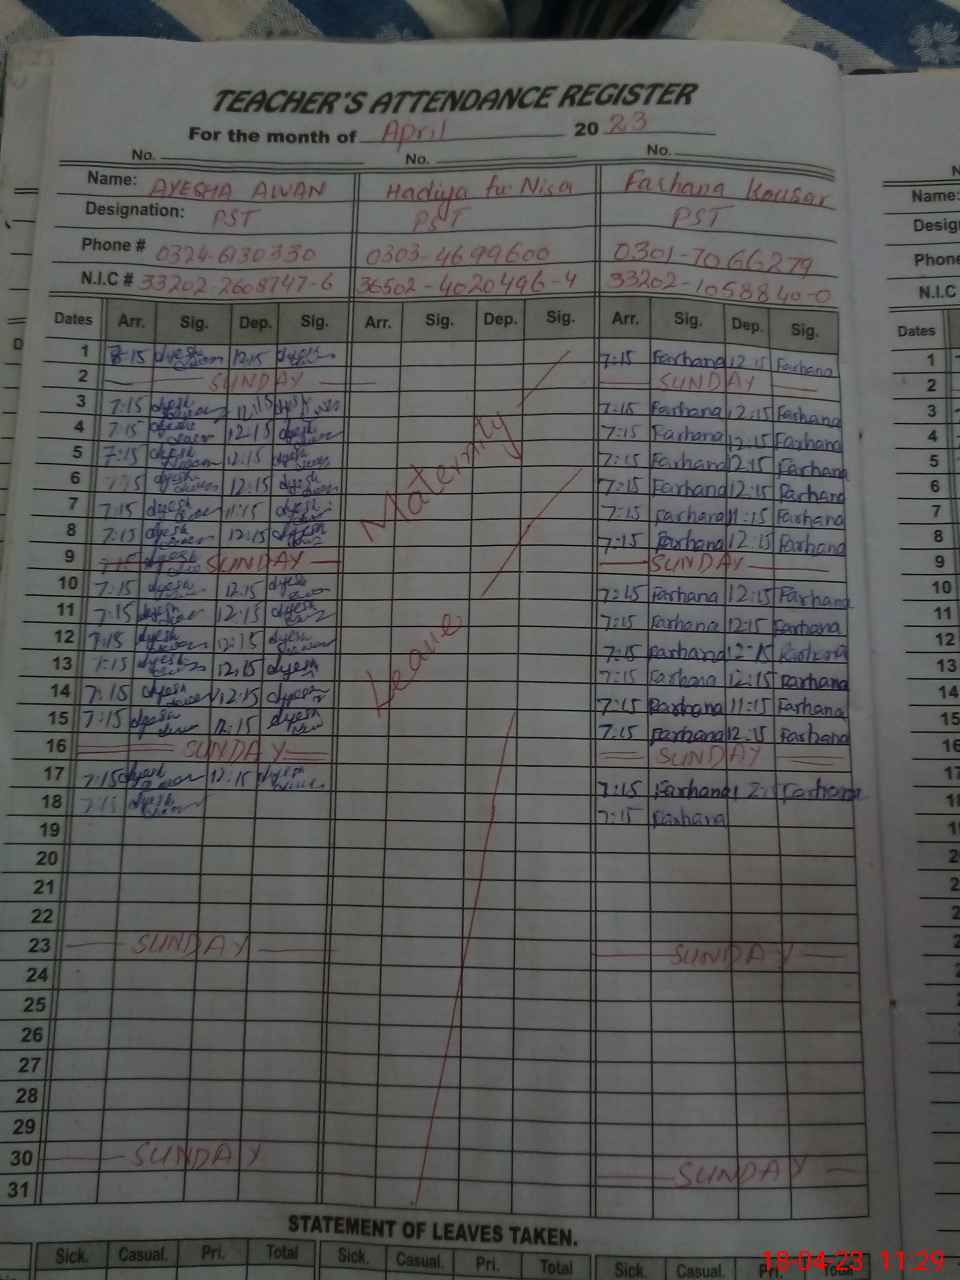 TEACHER'S ATTENDANCE REGISTER
For the month of April 2023
No. No. No.
Name: AYESHA AWAN Hadiya tu Nisa Farhana Kousar
Designation: PST PST PST
Phone # 0324-6130330 0303-4699600 0301-7066279
N.I.C # 33202-2608747-6 36502-4020496-4 33202-1058840-0
Dates Arr. Sig. Dep. Sig. Arr. Sig. Dep. Sig. Arr. Sig. Dep. Sig. Dates
1 8:15 12:15 7:15 Farhana 12:15 Farhana 1
2 SUNDAY SUNDAY 2
3 7:15 12:15 7:15 Farhana 12:15 Farhana 3
4 7:15 12:15 7:15 Farhana 12:15 Farhana 4
5 7:15 12:15 7:15 Farhana 12:15 Farhana 5
6 7:15 12:15 7:15 Farhana 12:15 Farhana 6
7 7:15 11:15 7:15 Farhana 11:15 Farhana 7
8 7:15 12:15 7:15 Farhana 12:15 Farhana 8
9 7:15 SUNDAY SUNDAY 9
10 7:15 12:15 7:15 Farhana 12:15 Farhana 10
11 7:15 12:15 7:15 Farhana 12:15 Farhana 11
12 7:15 12:15 7:15 Farhana 12:15 Farhana 12
13 7:15 12:15 7:15 Farhana 12:15 Farhana 13
14 7:15 12:15 7:15 Farhana 11:15 Farhana 14
15 7:15 12:15 7:15 Farhana 12:15 Farhana 15
Maternity
Leave
16 SUNDAY SUNDAY 16
17 7:15 12:15 7:15 Farhana 12:15 Farhana 17
18 7:15 7:15 Farhana
19
20
21
22
23 SUNDAY SUNDAY
24
25
26
27
28
29
30 SUNDAY SUNDAY
31
STATEMENT OF LEAVES TAKEN.
Sick. Casual. Pri. Total Sick. Casual. Pri. Total Sick. Casual.
18-04-23 11:29